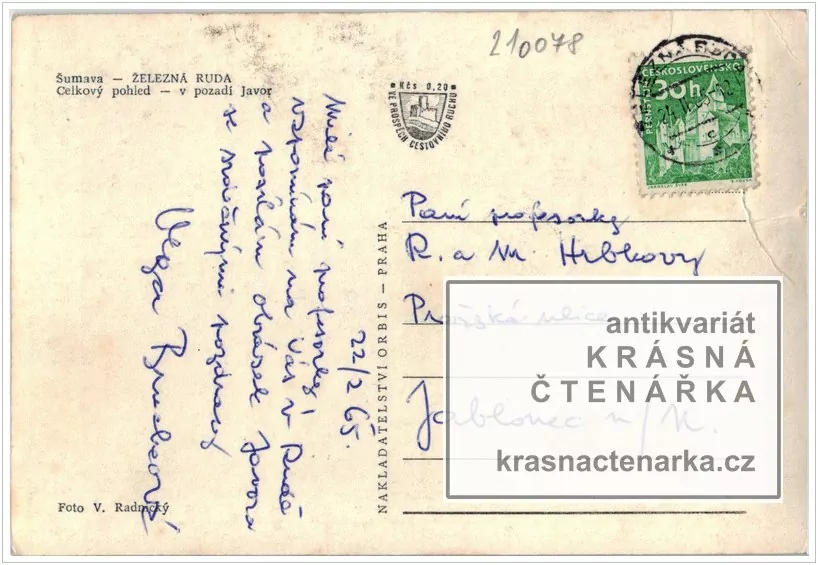 210078
Šumava — ŽELEZNÁ RUDA
Celkový pohled — v pozadí Javor
Kčs 0,20
VE PROSPĚCH CESTOVNÍHO RUCHU
ČESKOSLOVENSKO
30h
PERNŠTEJN
22/2 65.
Milé paní profesorky!
Vzpomínám na Vás v Rudě
a posílám obrázek Javora
se srdečnými pozdravy
Olga
NAKLADATELSTVÍ ORBIS — PRAHA
Paní profesorky
R. a M. Hrbkovy
Pražská ulice
Jablonec n/N.
antikvariát
KRÁSNÁ
ČTENÁŘKA
krasnactenarka.cz
Foto V. Radnický